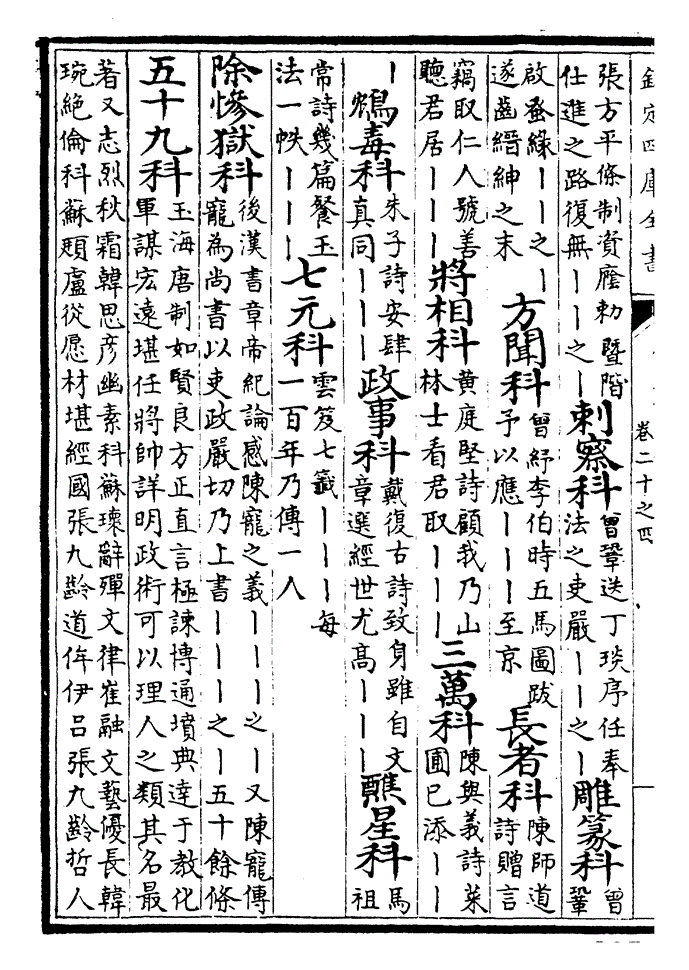 欽定四庫全書 卷二十之四
張方平條制資廕勅暨階
仕進之路復無丨丨之丨
刺察科
曾鞏送丁琰序任奉
法之吏嚴丨丨之丨
雕篆科
曾
鞏
啟蚤緣丨丨之丨
遂齒縉紳之末
方聞科
曾紆李伯時五馬圖跋
予以應丨丨丨至京
長者科
陳師道
詩贈言
竊取仁人號善
聽君居丨丨丨
將相科
黄庭堅詩顧我乃山
林士看君取丨丨丨
三萬科
陳與義詩菜
圃已添丨丨
丨
鴆毒科
朱子詩安肆
真同丨丨丨
政事科
戴復古詩致身雖自文
章選經世尤高丨丨丨
醮星科
馬
祖
常詩幾篇餐玉
法一帙丨丨丨
七元科
雲笈七籤丨丨丨每
一百年乃傳一人
除慘獄科
後漢書章帝紀論感陳寵之義丨丨丨之丨又陳寵傳
寵為尚書以吏政嚴切乃上書丨丨丨之丨五十餘條
五十九科
玉海唐制如賢良方正直言極諫博通墳典達于教化
軍謀宏遠堪任將帥詳明政術可以理人之類其名最
著又志烈秋霜韓思彦幽素科蘇瓌辭殫文律崔融文藝優長韓
琬絶倫科蘇頲盧從愿材堪經國張九齡道侔伊吕張九齡哲人